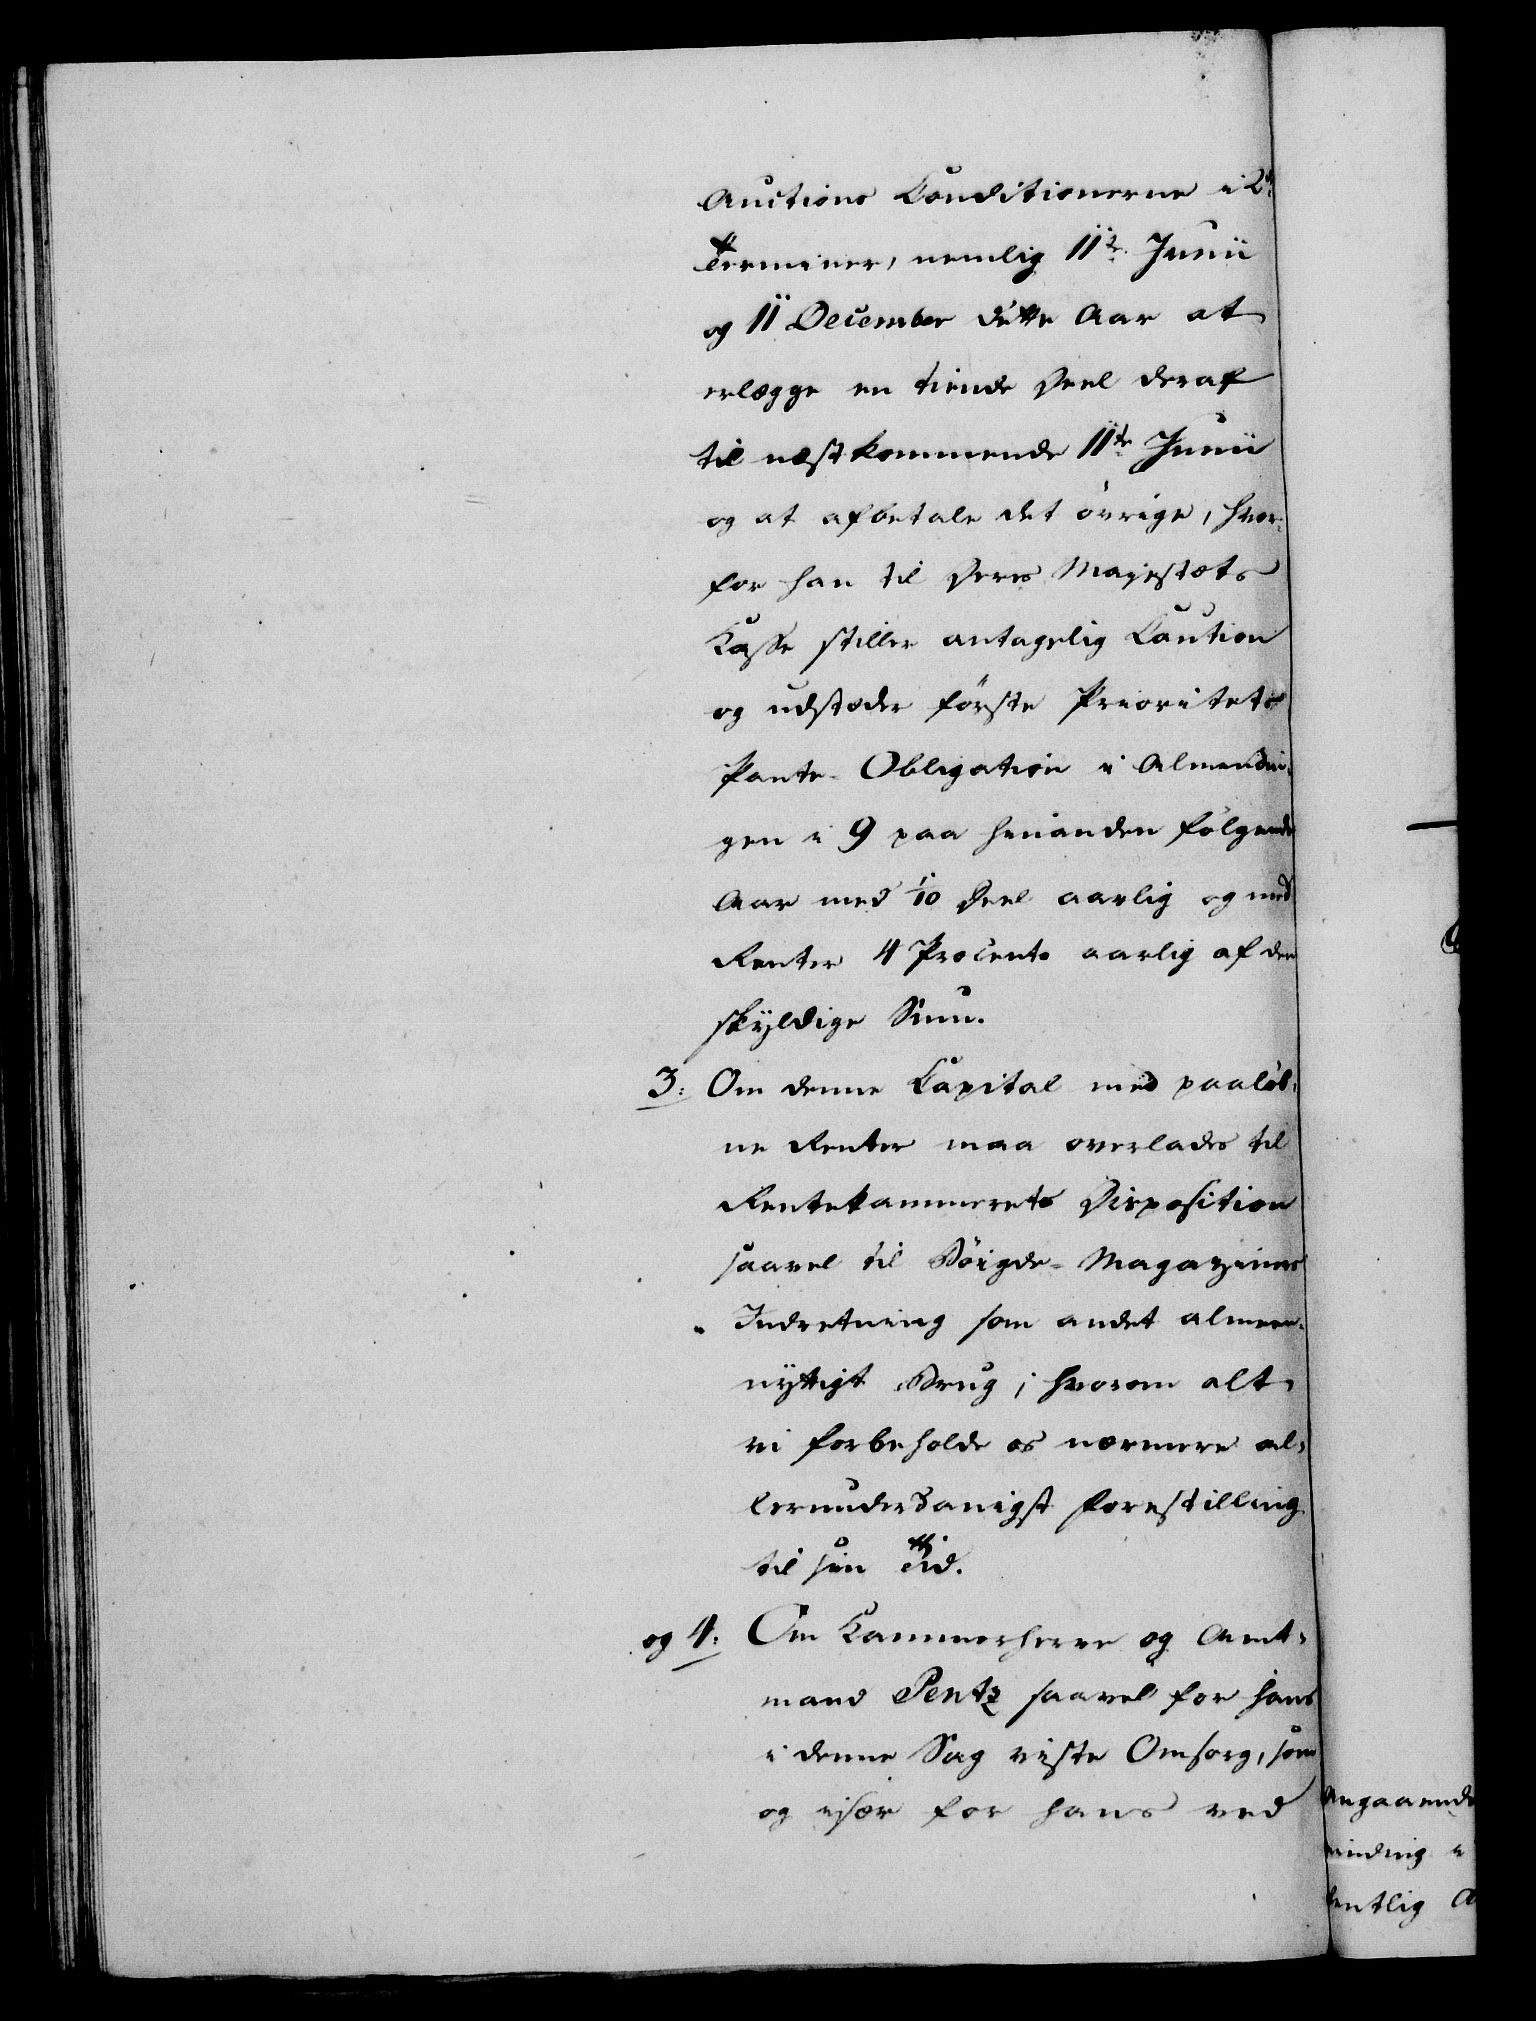 Auctions Conditionerne i 2de
Terminer, nemlig 11te Junii
og 11 December dette Aar at
erlægge en tiende Deel deraf
til næstkommende 11te Junii
og at afbetale det övrige, hvor-
for han til Deres Majestæts
Kasse stiller antagelig Caution
og udstæder förste Prioritets
Pante-Obligation i Almendin-
gen i 9 paa hinanden fölgende
Aar med 1/10 Deel aarlig og med
Renter 4 Procento aarlig af den
skyldige Sum.
3: Om denne Capital med paalöb-
ne Renter maa overlades til
Rentekammerets Disposition
saavel til Böigde-Magaziners
Indretning som andet almeen-
nyttigt Brug; hvorom alt
vi forbeholde os nærmere al-
lerunderdanigst Forestilling
til sin Tid.
og 4: Om Kammerherre og Amt-
mand Pentz saavel for hans
i denne Sag viste Omsorg, som
og især for hans ved
Angaaende